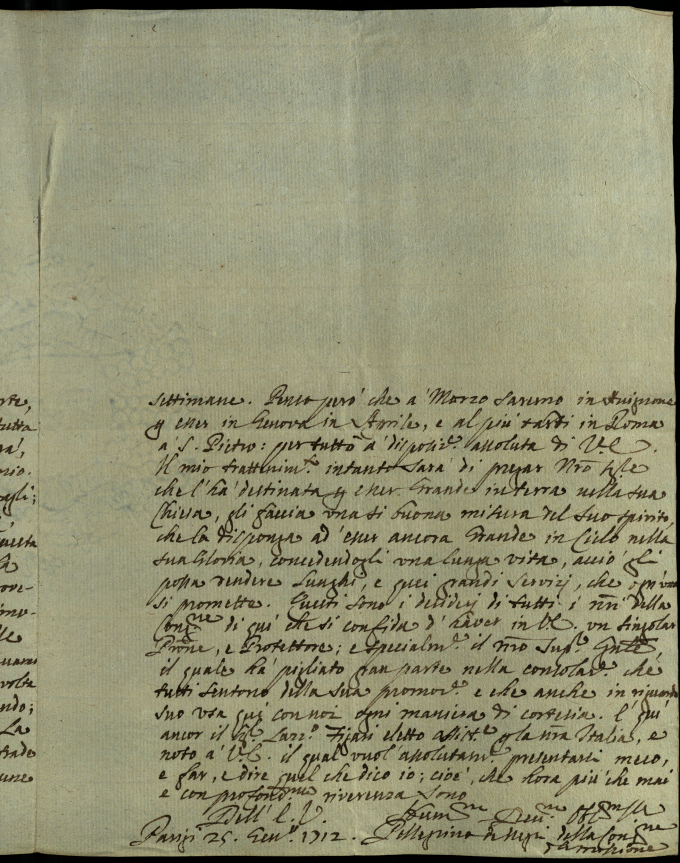 rte,
tutta
rà,
nio.
egli;
questa
ove-
imo-
lle
uanu
volte
ndo;
La
trade
une
settimane. Penso però che a' Marzo saremo in Avignone
p esser in Genova in Aprile, e al più tardi in Roma
a' S. Pietro: per tutto a' disposiz.e assoluta di V.E.
Il mio trattenim.to intanto sarà di pregar Nro
che l'ha destinata p esser Grande in terra nella sua
Chiesa, gli faccia una si buona misura del suo spirito,
che la disponga ad esser ancora Grande in Cielo nella
sua Gloria, concedendogli una lunga vita, acciò gli
possa rendere lunghi, e quei grandi servizj, che ogn'uno
si promette. Questi sono i desiderj di tutti i nri della
Cong.ne di quà che si confida d' haver in V.E. un singolar
Prone, e Protettore; e specialm.te il nro Sup.re Gnle,
il quale hà pigliato gran parte nella consolaz.e che
tutti sentono della sua promoz.e e che anche in riguardo
suo usa quì con noi ogni maniera di cortesia. E' quì
ancor il Lazz.o Figari eletto assist.e p la nra Italia, e
noto a' V.E. il qual vuol assolutam.te presentarsi meco,
e far, e dire quel che dico io; cioè, che hora più che mai
e con profond.ma riverenza sono
Dell' E.V. Hum.mo Dev.mo Obb.mo
Parigi 25. Gen.o 1712. Pellegrino de Negri della Cong.ne
Missione